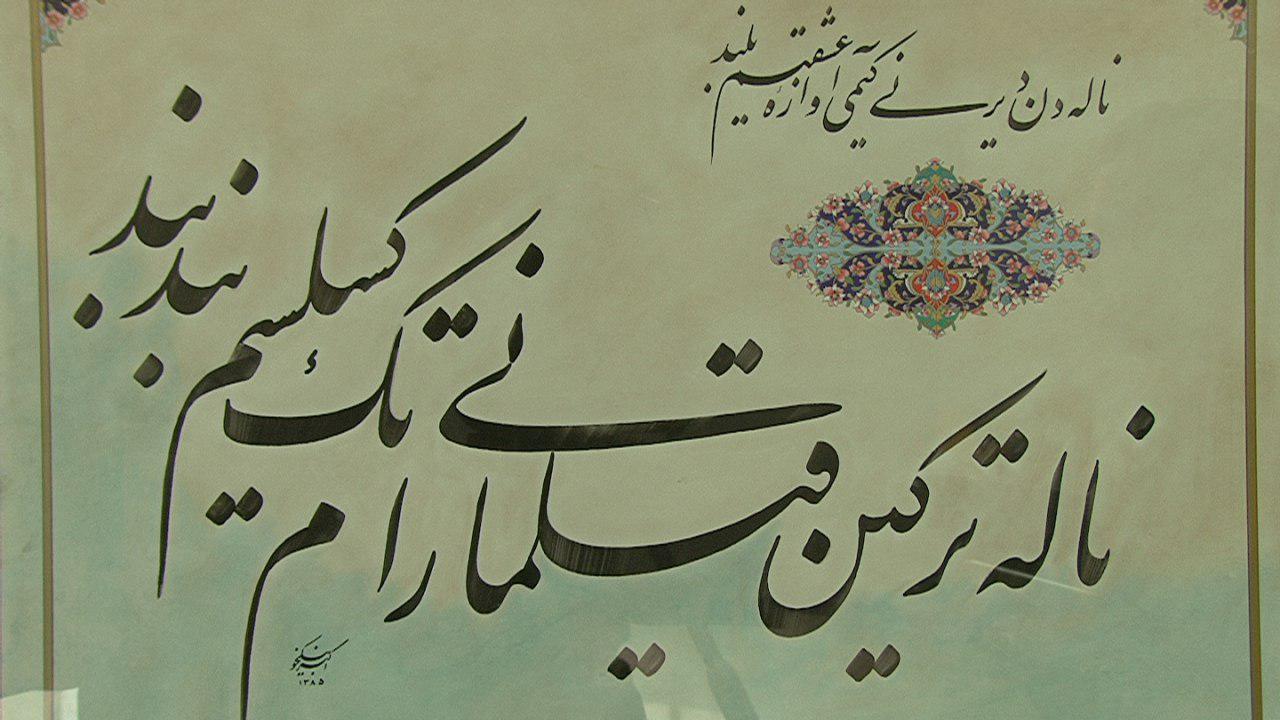 ناله دن دیر نی کیمی آوازهٔ عشقیم بلند
ناله ترکین قیلمارام نی تک کسیلسم بند بند
اکبر نیکخو
۱۳۸۵